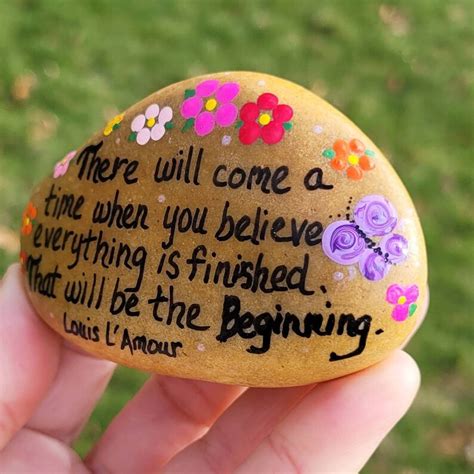 There will come a
time when you believe
everything is finished.
That will be the Beginning.
Louis L'Amour